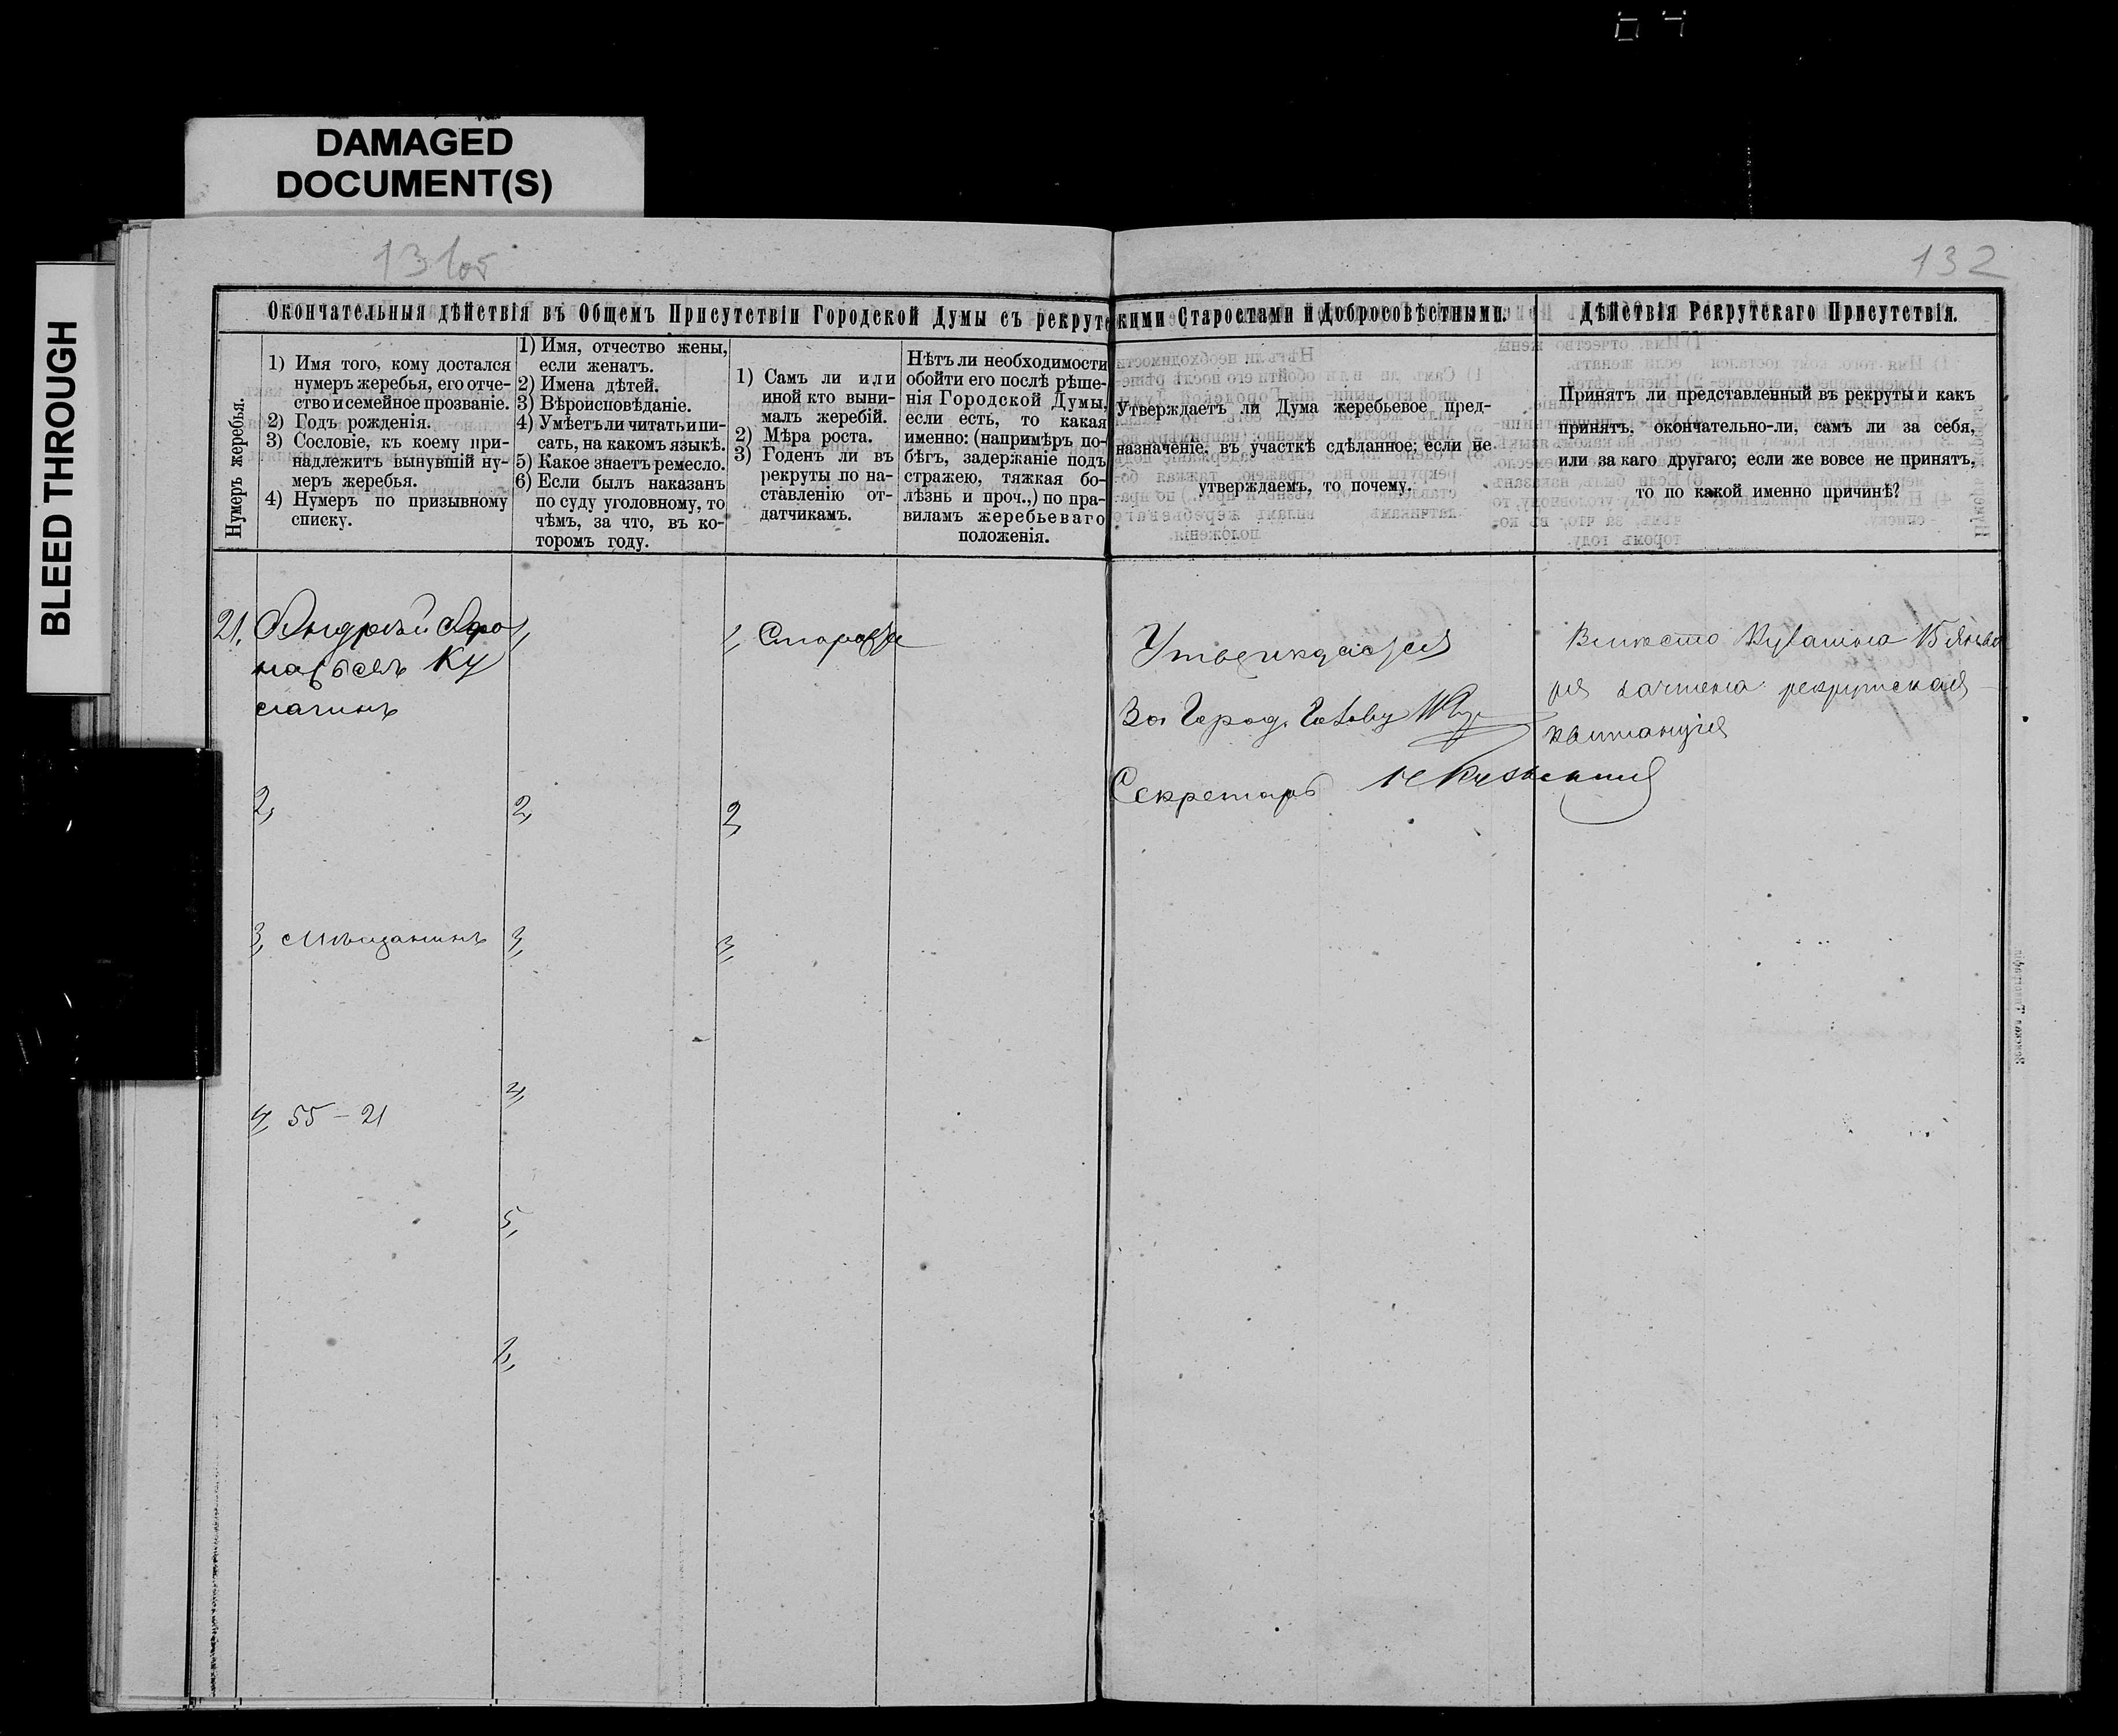 DAMAGED
DOCUMENT(S)
BLEED THROUGH
131об
132
Окончательныя дѣйствія въ Общемъ Присутствіи Городской Думы съ рекрутскими Старостами и Добросовѣстными.
Дѣйствія Рекрутскаго Присутствія.
Нумеръ жеребья.
1) Имя того, кому достался
нумеръ жеребья, его отче-
ство и семейное прозваніе.
2) Годъ рожденія.
3) Сословіе, къ коему при-
надлежитъ вынувшій ну-
меръ жеребья.
4) Нумеръ по призывному
списку.
1) Имя, отчество жены,
если женатъ.
2) Имена дѣтей.
3) Вѣроисповѣданіе.
4) Умѣетъ ли читать и пи-
сать, на какомъ языкѣ.
5) Какое знаетъ ремесло.
6) Если былъ наказанъ
по суду уголовному, то
чѣмъ, за что, въ ко-
торомъ году.
1) Самъ ли или
иной кто выни-
малъ жеребій.
2) Мѣра роста.
3) Годенъ ли въ
рекруты по на-
ставленію от-
датчикамъ.
Нѣтъ ли необходимости
обойти его послѣ рѣше-
нія Городской Думы,
если есть, то какая
именно: (напримѣръ по-
бѣгъ, задержаніе подъ
стражею, тяжкая бо-
лѣзнь и проч.,) по пра-
виламъ жеребьеваго
положенія.
Утверждаетъ ли Дума жеребьевое пред-
назначеніе; въ участкѣ сдѣланное; если не
утверждаемъ, то почему.
Принятъ ли представленный въ рекруты и какъ
принятъ. окончательно-ли, самъ ли за себя,
или за каго другаго; если же вовсе не принятъ,
то по какой именно причинѣ?
21, Андрей Афо
насьевъ Ку
2,
3, Мѣщанинъ
4, 55 - 21
1,
2,
3,
4,
5,
6,
1, Староста
2,
3,
Утверждается
За Город. Голову
Секретарь
Вмѣсто 15 Янва
ря зачтена рекрутская
квитанція